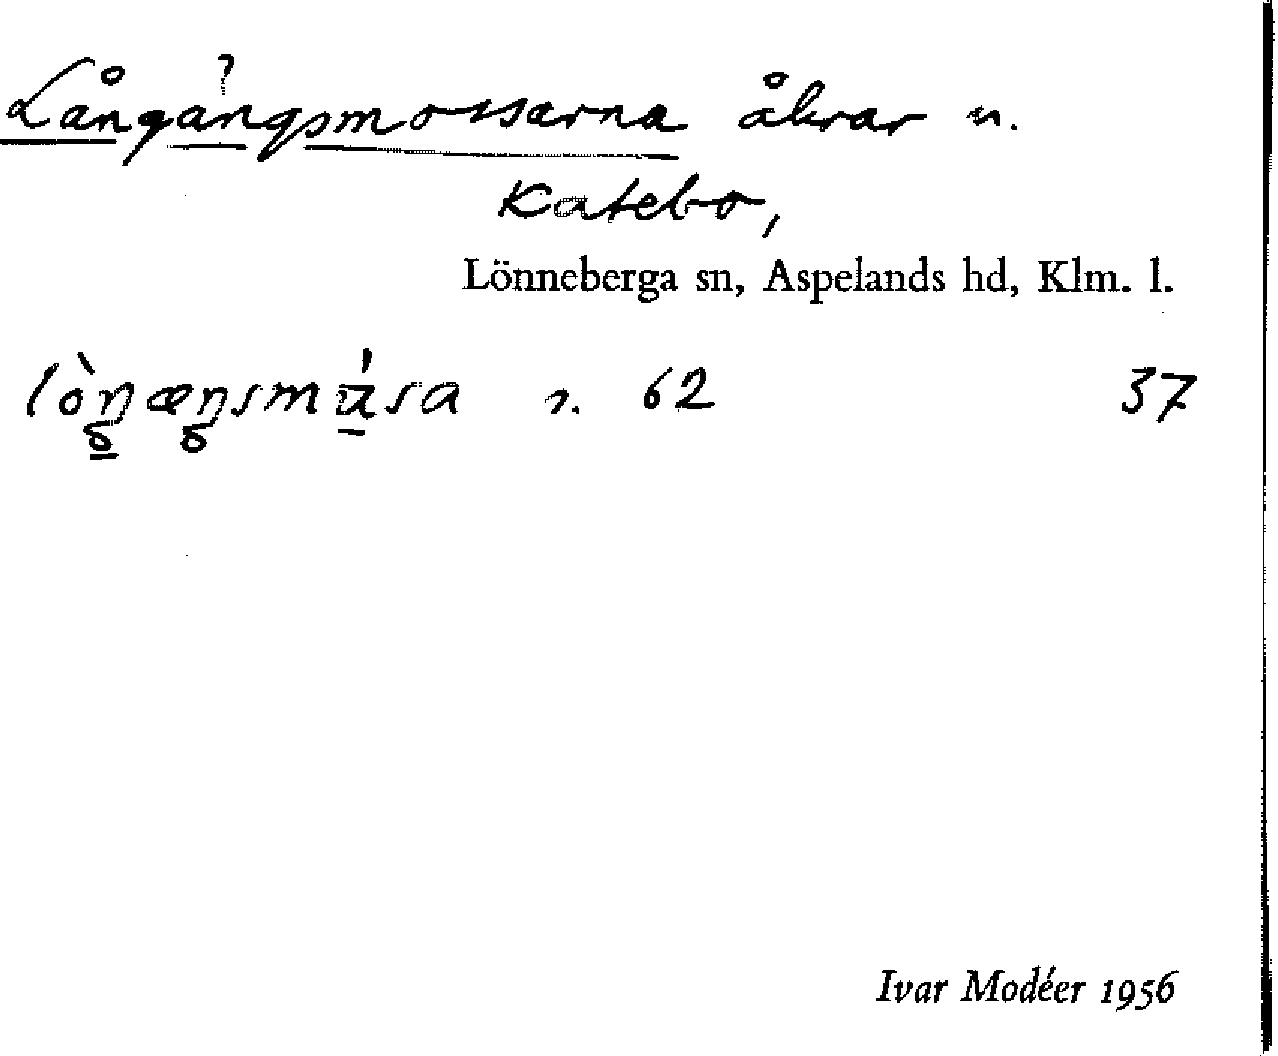 Långängsmossarna åkrar n.
Katebo,
Lönneberga sn, Aspelands hd, Klm. l.
62 37
Ivar Modéer 1956